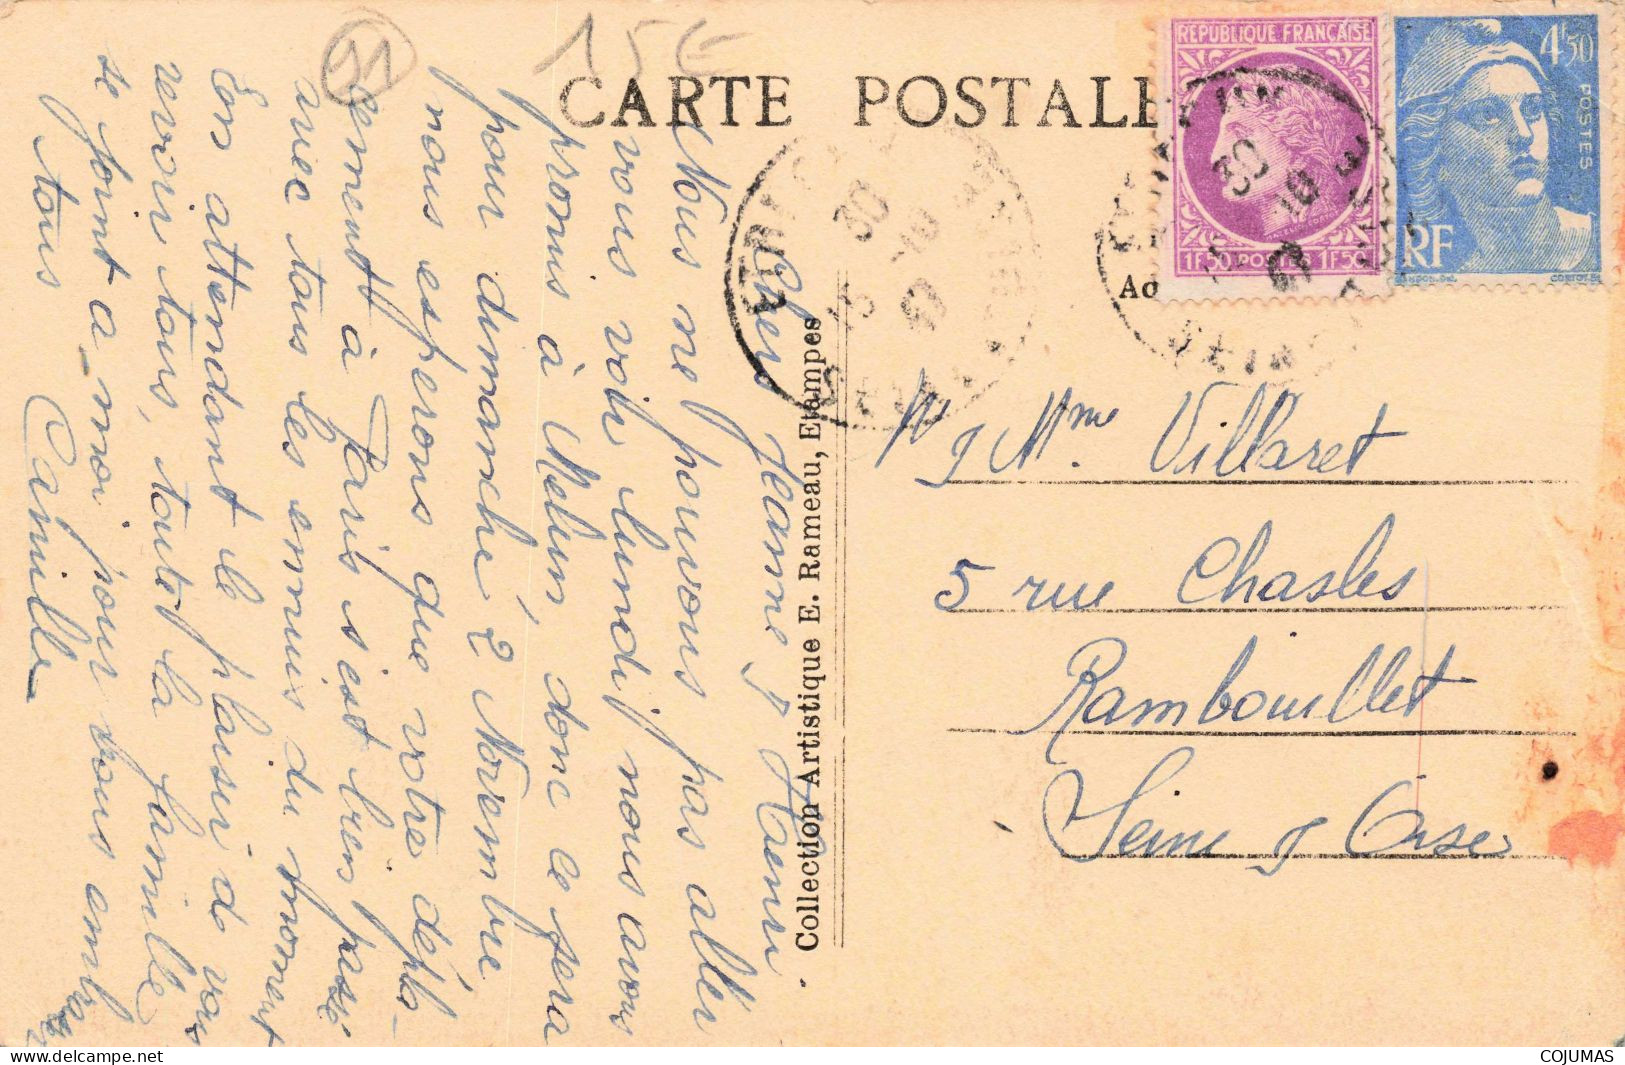 91
15€
CARTE POSTALE
REPUBLIQUE FRANÇAISE
1F50 POSTES 1F50
4F50
POSTES
RF
30
15 -10
47
30
-10
47
SEINE ET OISE
Ad
Collection Artistique E. Rameau, Etampes
Chers Jeanne & Remi.
Nous ne pouvons pas aller
vous voir lundi, nous avons
promis à Melun, donc ce sera
pour dimanche 2 Novembre
nous esperons que votre dépla-
cement à Paris s'est bien passé
avec tous les ennuis du moment
En attendant le plaisir de vous
revoir tous, toute la famille
se joint a moi pour vous embrasser
tous
Camille
Mr & Mme Villaret
5 rue Chasles
Rambouillet
Seine & Oise
COJUMAS